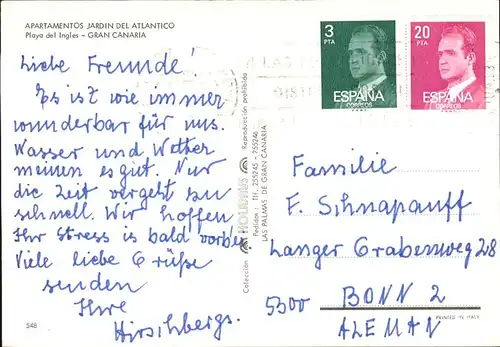 APARTAMENTOS JARDIN DEL ATLANTICO
Playa del Ingles – GRAN CANARIA
Liebe Freunde!
Es ist wie immer
wunderbar für uns.
Wasser und Wetter
meinen es gut. Nur
die Zeit vergeht zu
schnell. Wir hoffen
Ihr Stress is bald vorbei.
Viele liebe Grüße
senden
Ihre
Hirschbergs.
548
Colección HOLIDAYS Reproducción prohibida
Pedidos - Tlf. 255245 - 255246
LAS PALMAS DE GRAN CANARIA
3
PTA
ESPAÑA
CORREOS
20
PTA
ESPAÑA
CORREOS
Familie
F. Schnapauff
Langer Grabenweg 28
5300 BONN 2
ALEMAN
PRINTED IN ITALY